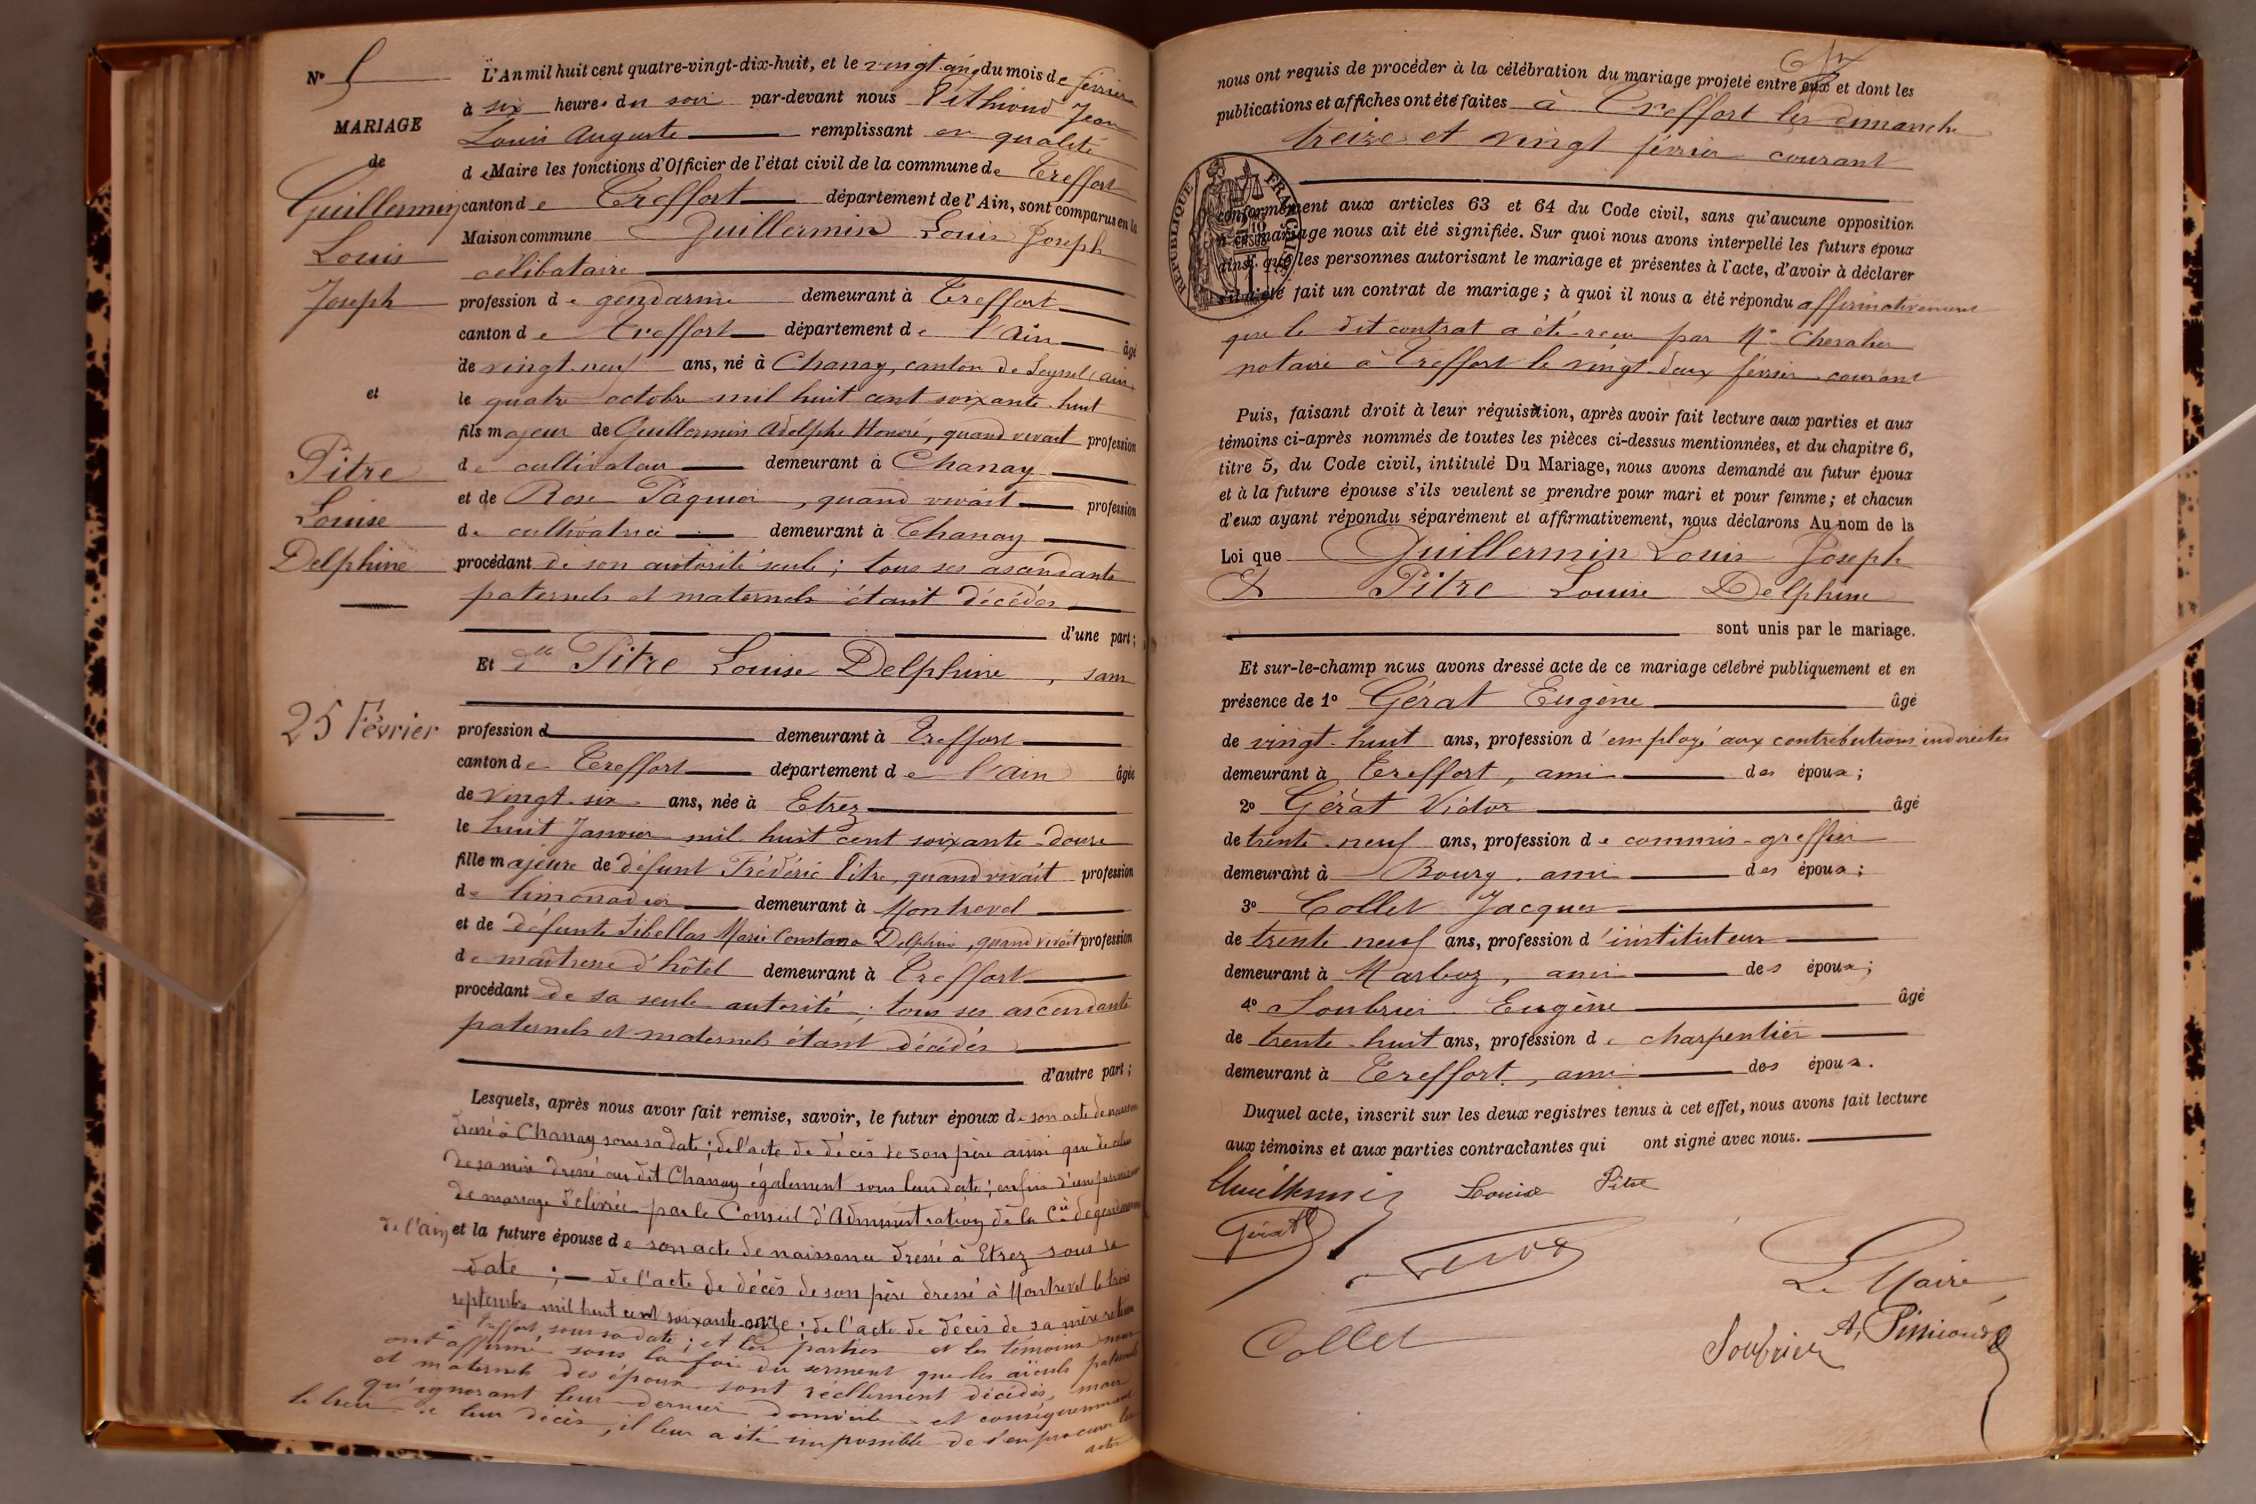 N° 5
MARIAGE
de
Guillermin
Louis
Joseph
et
Pitre
Louise
Delphine
25 Février
L'An mil huit cent quatre-vingt-dix-huit, et le vingt-cinq du mois de février
à six heures du soir par-devant nous Jean
Louis Auguste remplissant en qualité
de Maire les fonctions d'Officier de l'état civil de la commune de Treffort
canton de Treffort département de l'Ain, sont comparus en la
Maison commune Guillermin Louis Joseph
célibataire
profession de gendarme demeurant à Treffort
canton de Treffort département de l'Ain âgé
de vingt-neuf ans, né à Chanay, canton de Seyssel, Ain
le quatre octobre mil huit cent soixante-huit
fils majeur de Guillermin Adolphe Honoré, quand vivait profession
de cultivateur demeurant à Chanay
et de Rose Paquier, quand vivait profession
de cultivatrice demeurant à Chanay
procédant de son autorité seule ; tous ses ascendants
paternels et maternels étant décédés
d'une part ;
Et Dlle Pitre Louise Delphine, sans
profession d demeurant à Treffort
canton de Treffort département de l'Ain âgée
de vingt-six ans, née à Etrez
le huit Janvier mil huit cent soixante-douze
fille majeure de défunt Frédéric Pitre, quand vivait profession
de limonadier demeurant à Montrevel
et de défunte Sibellas Marie Constance Delphine, quand vivait profession
de maîtresse d'hôtel demeurant à Treffort
procédant de sa seule autorité ; tous ses ascendants
paternels et maternels étant décédés
d'autre part ;
Lesquels, après nous avoir fait remise, savoir, le futur époux de son acte de naissance
dressé à Chanay sous sa date ; de l'acte de décès de son père ainsi que de celui
de sa mère dressé au dit Chanay également sous leur date ; enfin d'une permission
de mariage délivrée par le Conseil d'Administration de la Cie de gendarmerie
de l'Ain et la future épouse de son acte de naissance dressé à Etrez sous sa
date ; de l'acte de décès de son père dressé à Montrevel le trois
septembre mil huit cent soixante-onze ; de l'acte de décès de sa mère
à Treffort sous sa date ; et les parties et les témoins nous
ont affirmé sous la foi du serment que les aïeuls paternels
et maternels des époux sont réellement décédés, mais
qu'ignorant leur dernier domicile et conséquemment
le lieu de leur décès, il leur a été impossible de s'en procurer les
actes
nous ont requis de procéder à la célébration du mariage projeté entre eux et dont les
publications et affiches ont été faites à Treffort les dimanche
treize et vingt février courant
RÉPUBLIQUE FRANÇAISE
conformément aux articles 63 et 64 du Code civil, sans qu'aucune opposition
à ce mariage nous ait été signifiée. Sur quoi nous avons interpellé les futurs époux
ainsi que les personnes autorisant le mariage et présentes à l'acte, d'avoir à déclarer
s'il a été fait un contrat de mariage ; à quoi il nous a été répondu affirmativement
que le dit contrat a été reçu par Me Chevalier
notaire à Treffort le vingt-deux février courant
Puis, faisant droit à leur réquisition, après avoir fait lecture aux parties et aux
témoins ci-après nommés de toutes les pièces ci-dessus mentionnées, et du chapitre 6,
titre 5, du Code civil, intitulé Du Mariage, nous avons demandé au futur époux
et à la future épouse s'ils veulent se prendre pour mari et pour femme ; et chacun
d'eux ayant répondu séparément et affirmativement, nous déclarons Au nom de la
Loi que Guillermin Louis Joseph
& Pitre Louise Delphine
sont unis par le mariage.
Et sur-le-champ nous avons dressé acte de ce mariage célébré publiquement et en
présence de 1° Gérat Eugène âgé
de vingt-huit ans, profession d'employé aux contributions indirectes
demeurant à Treffort, ami des époux ;
2° Gérat Victor âgé
de trente-neuf ans, profession de commis-greffier
demeurant à Bourg, ami des époux ;
3° Collet Jacques
de trente-neuf ans, profession d'instituteur
demeurant à Marboz, ami des époux ;
4° Soubrier Eugène âgé
de trente-huit ans, profession de charpentier
demeurant à Treffort, ami des époux.
Duquel acte, inscrit sur les deux registres tenus à cet effet, nous avons fait lecture
aux témoins et aux parties contractantes qui ont signé avec nous.
Guillermin Louise Pitre
Gérat
Le Maire,
Collet Soubrier